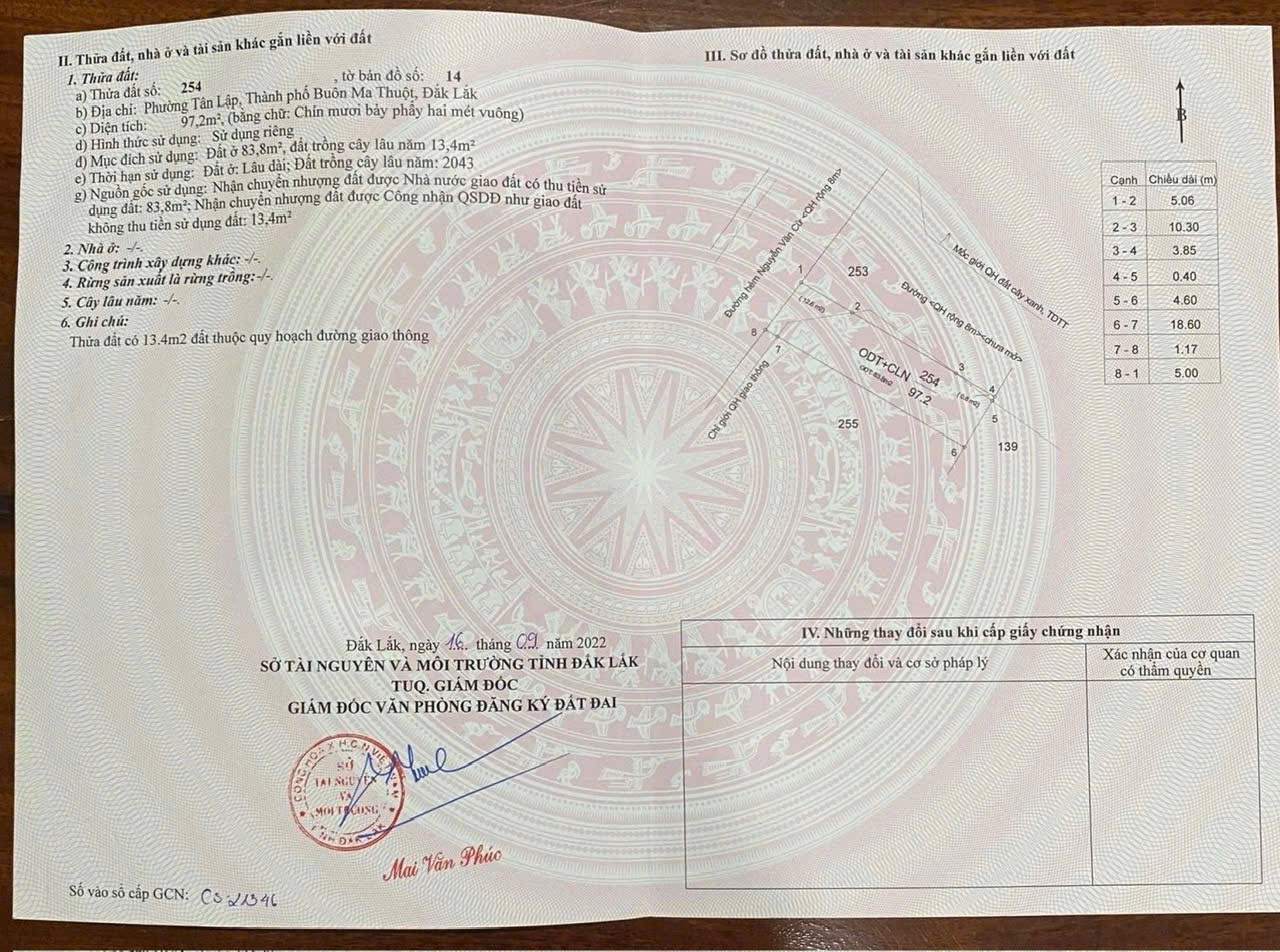 II. Thửa đất, nhà ở và tài sản khác gắn liền với đất
1. Thửa đất:
a) Thửa đất số: 254 , tờ bản đồ số: 14
b) Địa chỉ: Phường Tân Lập, Thành phố Buôn Ma Thuột, Đắk Lắk
c) Diện tích: 97,2m², (bằng chữ: Chín mươi bảy phẩy hai mét vuông)
d) Hình thức sử dụng: Sử dụng riêng
đ) Mục đích sử dụng: Đất ở 83,8m², đất trồng cây lâu năm 13,4m²
e) Thời hạn sử dụng: Đất ở: Lâu dài; Đất trồng cây lâu năm: 2043
g) Nguồn gốc sử dụng: Nhận chuyển nhượng đất được Nhà nước giao đất có thu tiền sử
dụng đất: 83,8m²; Nhận chuyển nhượng đất được Công nhận QSDĐ như giao đất
không thu tiền sử dụng đất: 13,4m²
2. Nhà ở: -/-.
3. Công trình xây dựng khác: -/-.
4. Rừng sản xuất là rừng trồng:-/-.
5. Cây lâu năm: -/-.
6. Ghi chú:
Thửa đất có 13.4m2 đất thuộc quy hoạch đường giao thông
Đắk Lắk, ngày 16 tháng 09 năm 2022
SỞ TÀI NGUYÊN VÀ MÔI TRƯỜNG TỈNH ĐẮK LẮK
TUQ. GIÁM ĐỐC
GIÁM ĐỐC VĂN PHÒNG ĐĂNG KÝ ĐẤT ĐAI
CỘNG HÒA X.H.C.N VIỆT NAM
SỞ
TÀI NGUYÊN
VÀ
MÔI TRƯỜNG
TỈNH ĐẮK LẮK
Mai Văn Phúc
Số vào sổ cấp GCN: CS 21346
III. Sơ đồ thửa đất, nhà ở và tài sản khác gắn liền với đất
B
Đường hẻm Nguyễn Văn Cừ <QH rộng 8m>
Mốc giới QH đất cây xanh, TDTT
Đường <QH rộng 8m><chưa mở>
Chỉ giới QH giao thông
253
1
(12.6 m2)
2
8
7
ODT+CLN 254
ODT:83.8m2 97.2
3
(0.8 m2)
4
5
255
6
139
Cạnh Chiều dài (m)
1 - 2 5.06
2 - 3 10.30
3 - 4 3.85
4 - 5 0.40
5 - 6 4.60
6 - 7 18.60
7 - 8 1.17
8 - 1 5.00
IV. Những thay đổi sau khi cấp giấy chứng nhận
Nội dung thay đổi và cơ sở pháp lý
Xác nhận của cơ quan
có thẩm quyền